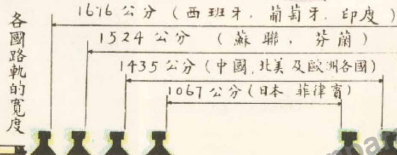 各國路軌的寬度
1676 公分 (西班牙．葡萄牙．印度)
1524 公分 (蘇聯．芬蘭)
1435公分 (中國．北美及歐洲各國)
1067公分 (日本 菲律賓)